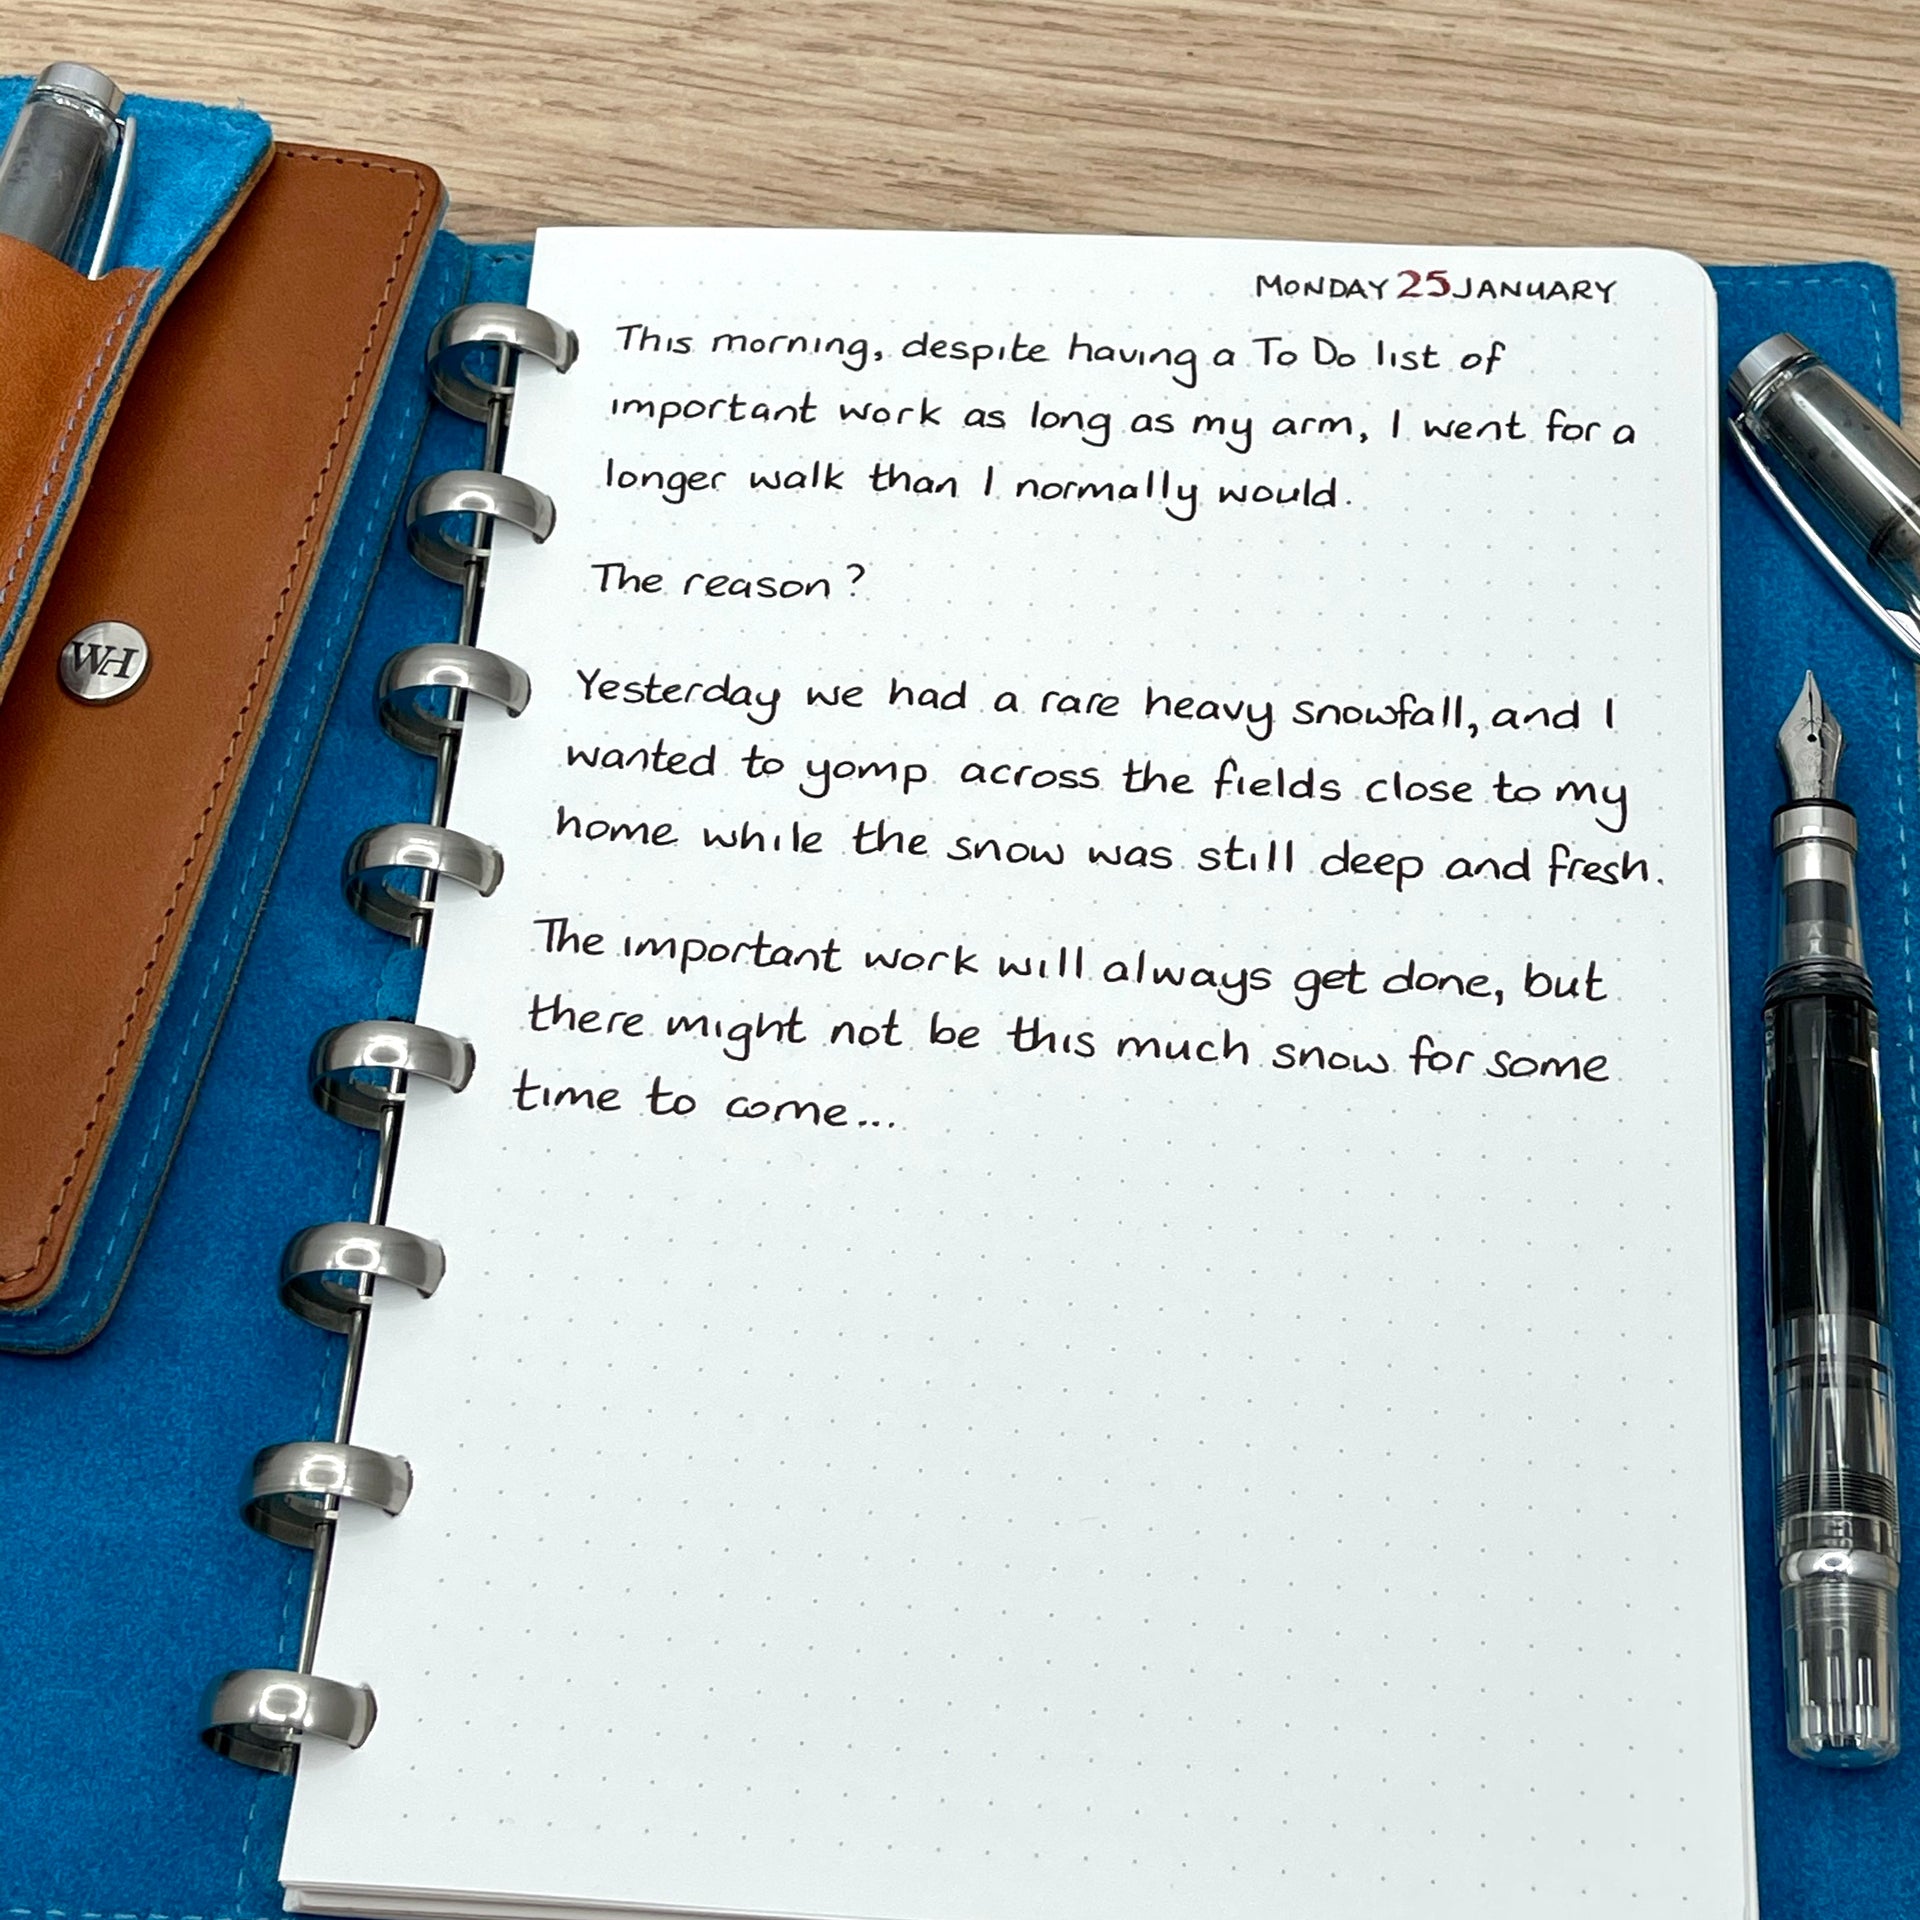 MONDAY 25 JANUARY
This morning, despite having a To Do list of
important work as long as my arm, I went for a
longer walk than I normally would.
The reason?
Yesterday we had a rare heavy snowfall, and I
wanted to yomp across the fields close to my
home while the snow was still deep and fresh.
The important work will always get done, but
there might not be this much snow for some
time to come...
WH